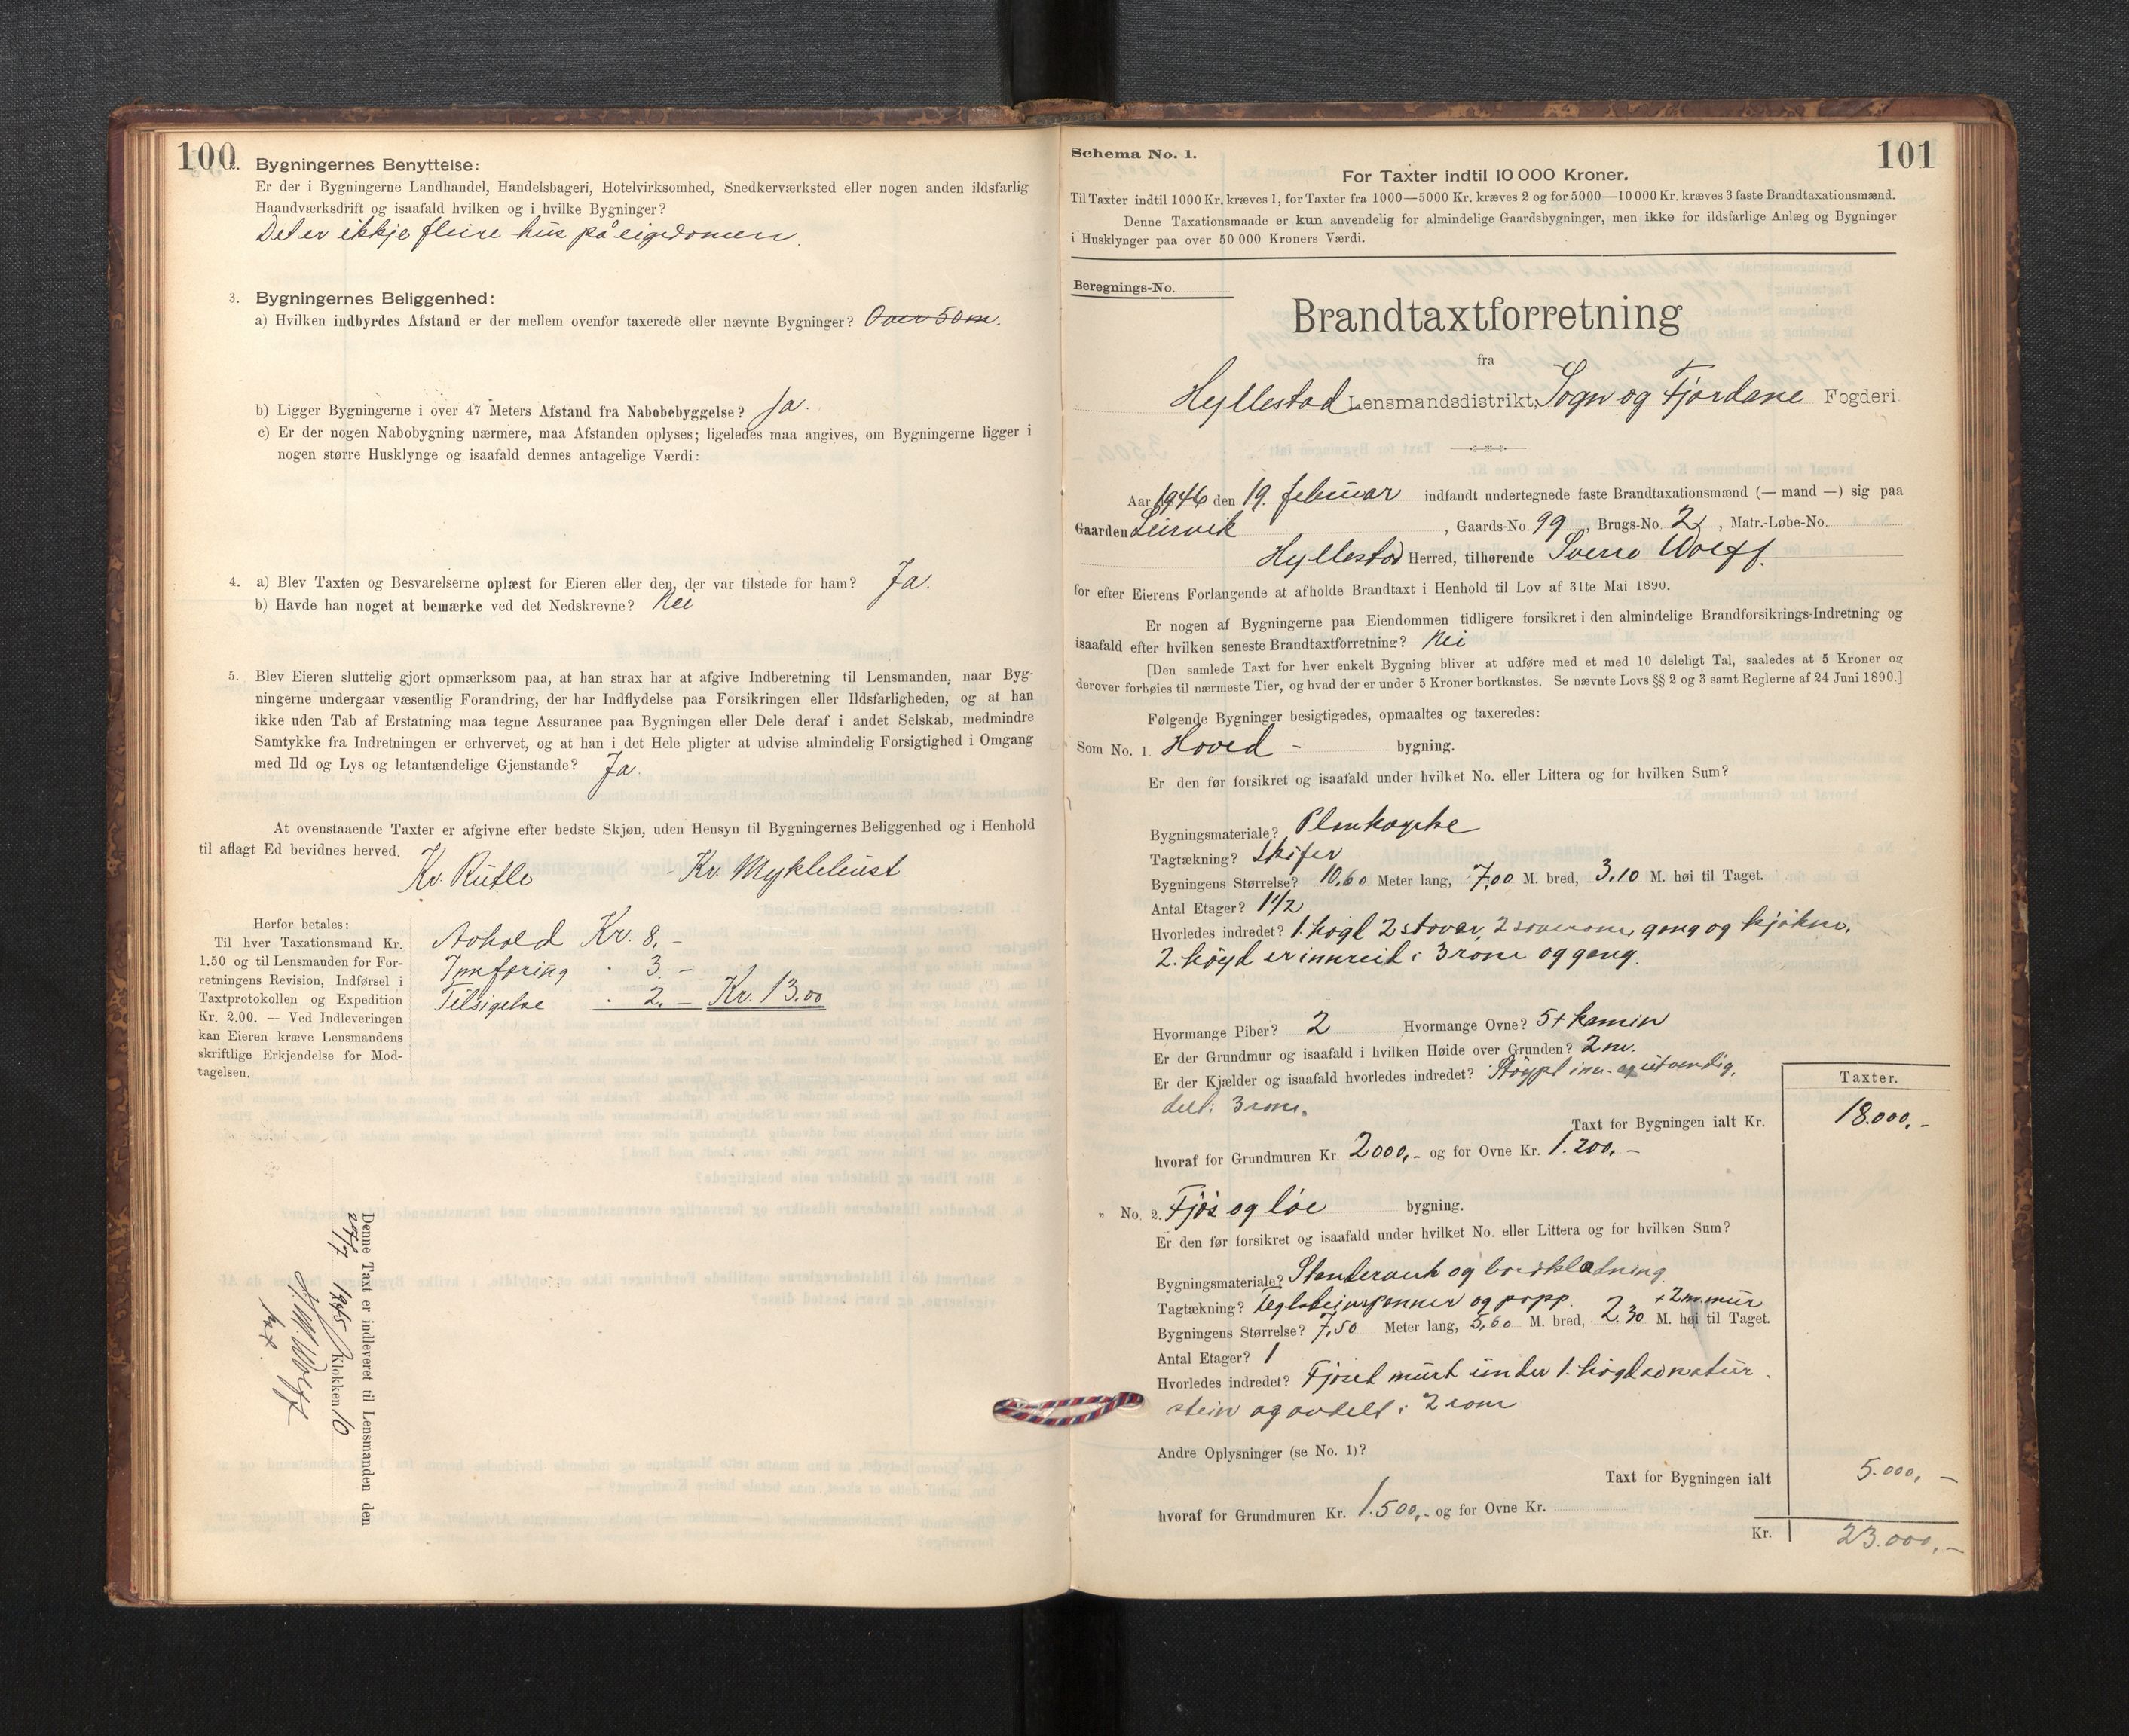 100
2. Bygningernes Benyttelse:
Er der i Bygningerne Landhandel, Handelsbageri, Hotelvirksomhed, Snedkerværksted eller nogen anden ildsfarlig
Haandværksdrift og isaafald hvilken og i hvilke Bygninger?
Det er ikkje fleire hus på eigedomen.
3. Bygningernes Beliggenhed:
a) Hvilken indbyrdes Afstand er der mellem ovenfor taxerede eller nævnte Bygninger? Over 50 m.
b) Ligger Bygningerne i over 47 Meters Afstand fra Nabobebyggelse? Ja.
c) Er der nogen Nabobygning nærmere, maa Afstanden oplyses; ligeledes maa angives, om Bygningerne ligger i
nogen større Husklynge og isaafald dennes antagelige Værdi:
4. a) Blev Taxten og Besvarelserne oplæst for Eieren eller den, der var tilstede for ham? Ja.
b) Havde han noget at bemærke ved det Nedskrevne? Nei
5. Blev Eieren sluttelig gjort opmærksom paa, at han strax har at afgive Indberetning til Lensmanden, naar Byg-
ningerne undergaar væsentlig Forandring, der har Indflydelse paa Forsikringen eller Ildsfarligheden, og at han
ikke uden Tab af Erstatning maa tegne Assurance paa Bygningen eller Dele deraf i andet Selskab, medmindre
Samtykke fra Indretningen er erhvervet, og at han i det Hele pligter at udvise almindelig Forsigtighed i Omgang
med Ild og Lys og letantændelige Gjenstande? Ja.
At ovenstaaende Taxter er afgivne efter bedste Skjøn, uden Hensyn til Bygningernes Beliggenhed og i Henhold
til aflagt Ed bevidnes herved.
Kr. Rutle Kr. Myklebust
Herfor betales:
Til hver Taxationsmand Kr.
1.50 og til Lensmanden for For-
retningens Revision, Indførsel i
Taxtprotokollen og Expedition
Kr. 2.00. — Ved Indleveringen
kan Eieren kræve Lensmandens
skriftlige Erkjendelse for Mod-
tagelsen.
Avhold Kr. 8,-
Innføring " 3.-
Tilsigelse " 2.- Kr. 13.00
Denne Taxt er indleveret til Lensmanden den
Klokken 10
101
Schema No. 1.
For Taxter indtil 10 000 Kroner.
Til Taxter indtil 1000 Kr. kræves 1, for Taxter fra 1000—5000 Kr. kræves 2 og for 5000—10 000 Kr. kræves 3 faste Brandtaxationsmænd.
Denne Taxationsmaade er kun anvendelig for almindelige Gaardsbygninger, men ikke for ildsfarlige Anlæg og Bygninger
i Husklynger paa over 50 000 Kroners Værdi.
Beregnings-No.
Brandtaxtforretning
fra
Hyllestad Lensmandsdistrikt, Sogn og Fjordane Fogderi
Aar 1946 den 19. februar indfandt undertegnede faste Brandtaxationsmænd (— mand —) sig paa
Gaarden Leirvik, Gaards-No. 99, Brugs-No. 2, Matr.-Løbe-No.
Hyllestad Herred, tilhørende Sverre Wolff.
for efter Eierens Forlangende at afholde Brandtaxt i Henhold til Lov af 31te Mai 1890.
Er nogen af Bygningerne paa Eiendommen tidligere forsikret i den almindelige Brandforsikrings-Indretning og
isaafald efter hvilken seneste Brandtaxtforretning? Nei
[Den samlede Taxt for hver enkelt Bygning bliver at udføre med et med 10 deleligt Tal, saaledes at 5 Kroner og
derover forhøies til nærmeste Tier, og hvad der er under 5 Kroner bortkastes. Se nævnte Lovs §§ 2 og 3 samt Reglerne af 24 Juni 1890.]
Følgende Bygninger besigtigedes, opmaaltes og taxeredes:
Som No. 1. Hoved - bygning.
Er den før forsikret og isaafald under hvilket No. eller Littera og for hvilken Sum?
Bygningsmateriale?
Tagtækning? Skifer
Bygningens Størrelse? 10,60 Meter lang, 7,00 M. bred, 3.10 M. høi til Taget.
Antal Etager? 1 1/2
Hvorledes indredet? 1. høgd 2 stover, 2 soverom, gang og kjøken,
2. høgd er innreid i 3 rom og gang.
Hvormange Piber? 2 Hvormange Ovne? 5 + kamin
Er der Grundmur og isaafald i hvilken Høide over Grunden? 2 m.
Er der Kjælder og isaafald hvorledes indredet? Støypt inn- og utvendig,
delt i 3 rom.
Taxter.
Taxt for Bygningen ialt Kr. 18.000,-
hvoraf for Grundmuren Kr. 2000,- og for Ovne Kr. 1.200,-
" No. 2. Fjøs og løe bygning.
Er den før forsikret og isaafald under hvilket No. eller Littera og for hvilken Sum?
Bygningsmateriale? Stenderverk og bordkledning
Tagtækning? teglsteinspanner og papp. + 2 m. mur
Bygningens Størrelse? 7,50 Meter lang, 5,60 M. bred, 2.30 M. høi til Taget.
Antal Etager? 1
Hvorledes indredet? Fjøset murt under 1. høgd av natur-
stein og avdelt i 2 rom
Andre Oplysninger (se No. 1)?
Taxt for Bygningen ialt 5.000,-
hvoraf for Grundmuren Kr. 1.500,- og for Ovne Kr.
Kr. 23.000,-